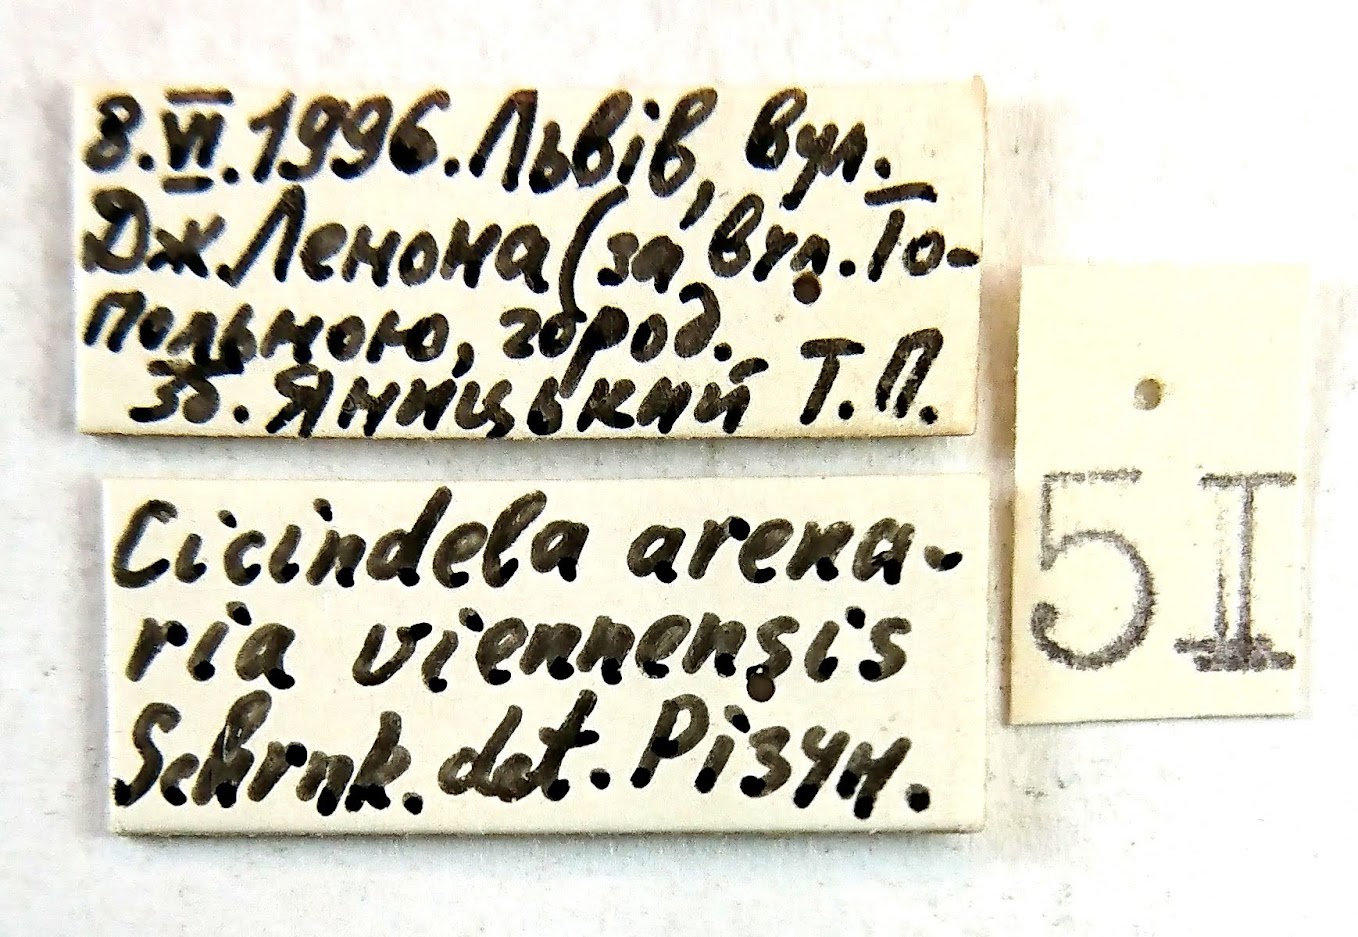 8.VI.1996. Львів, вул.
Дж. Ленона (за вул. То-
польною, город.
Зб. Яницький Т.П.
Cicindela arena-
ria viennensis
Schrnk. det. Різун.
5I